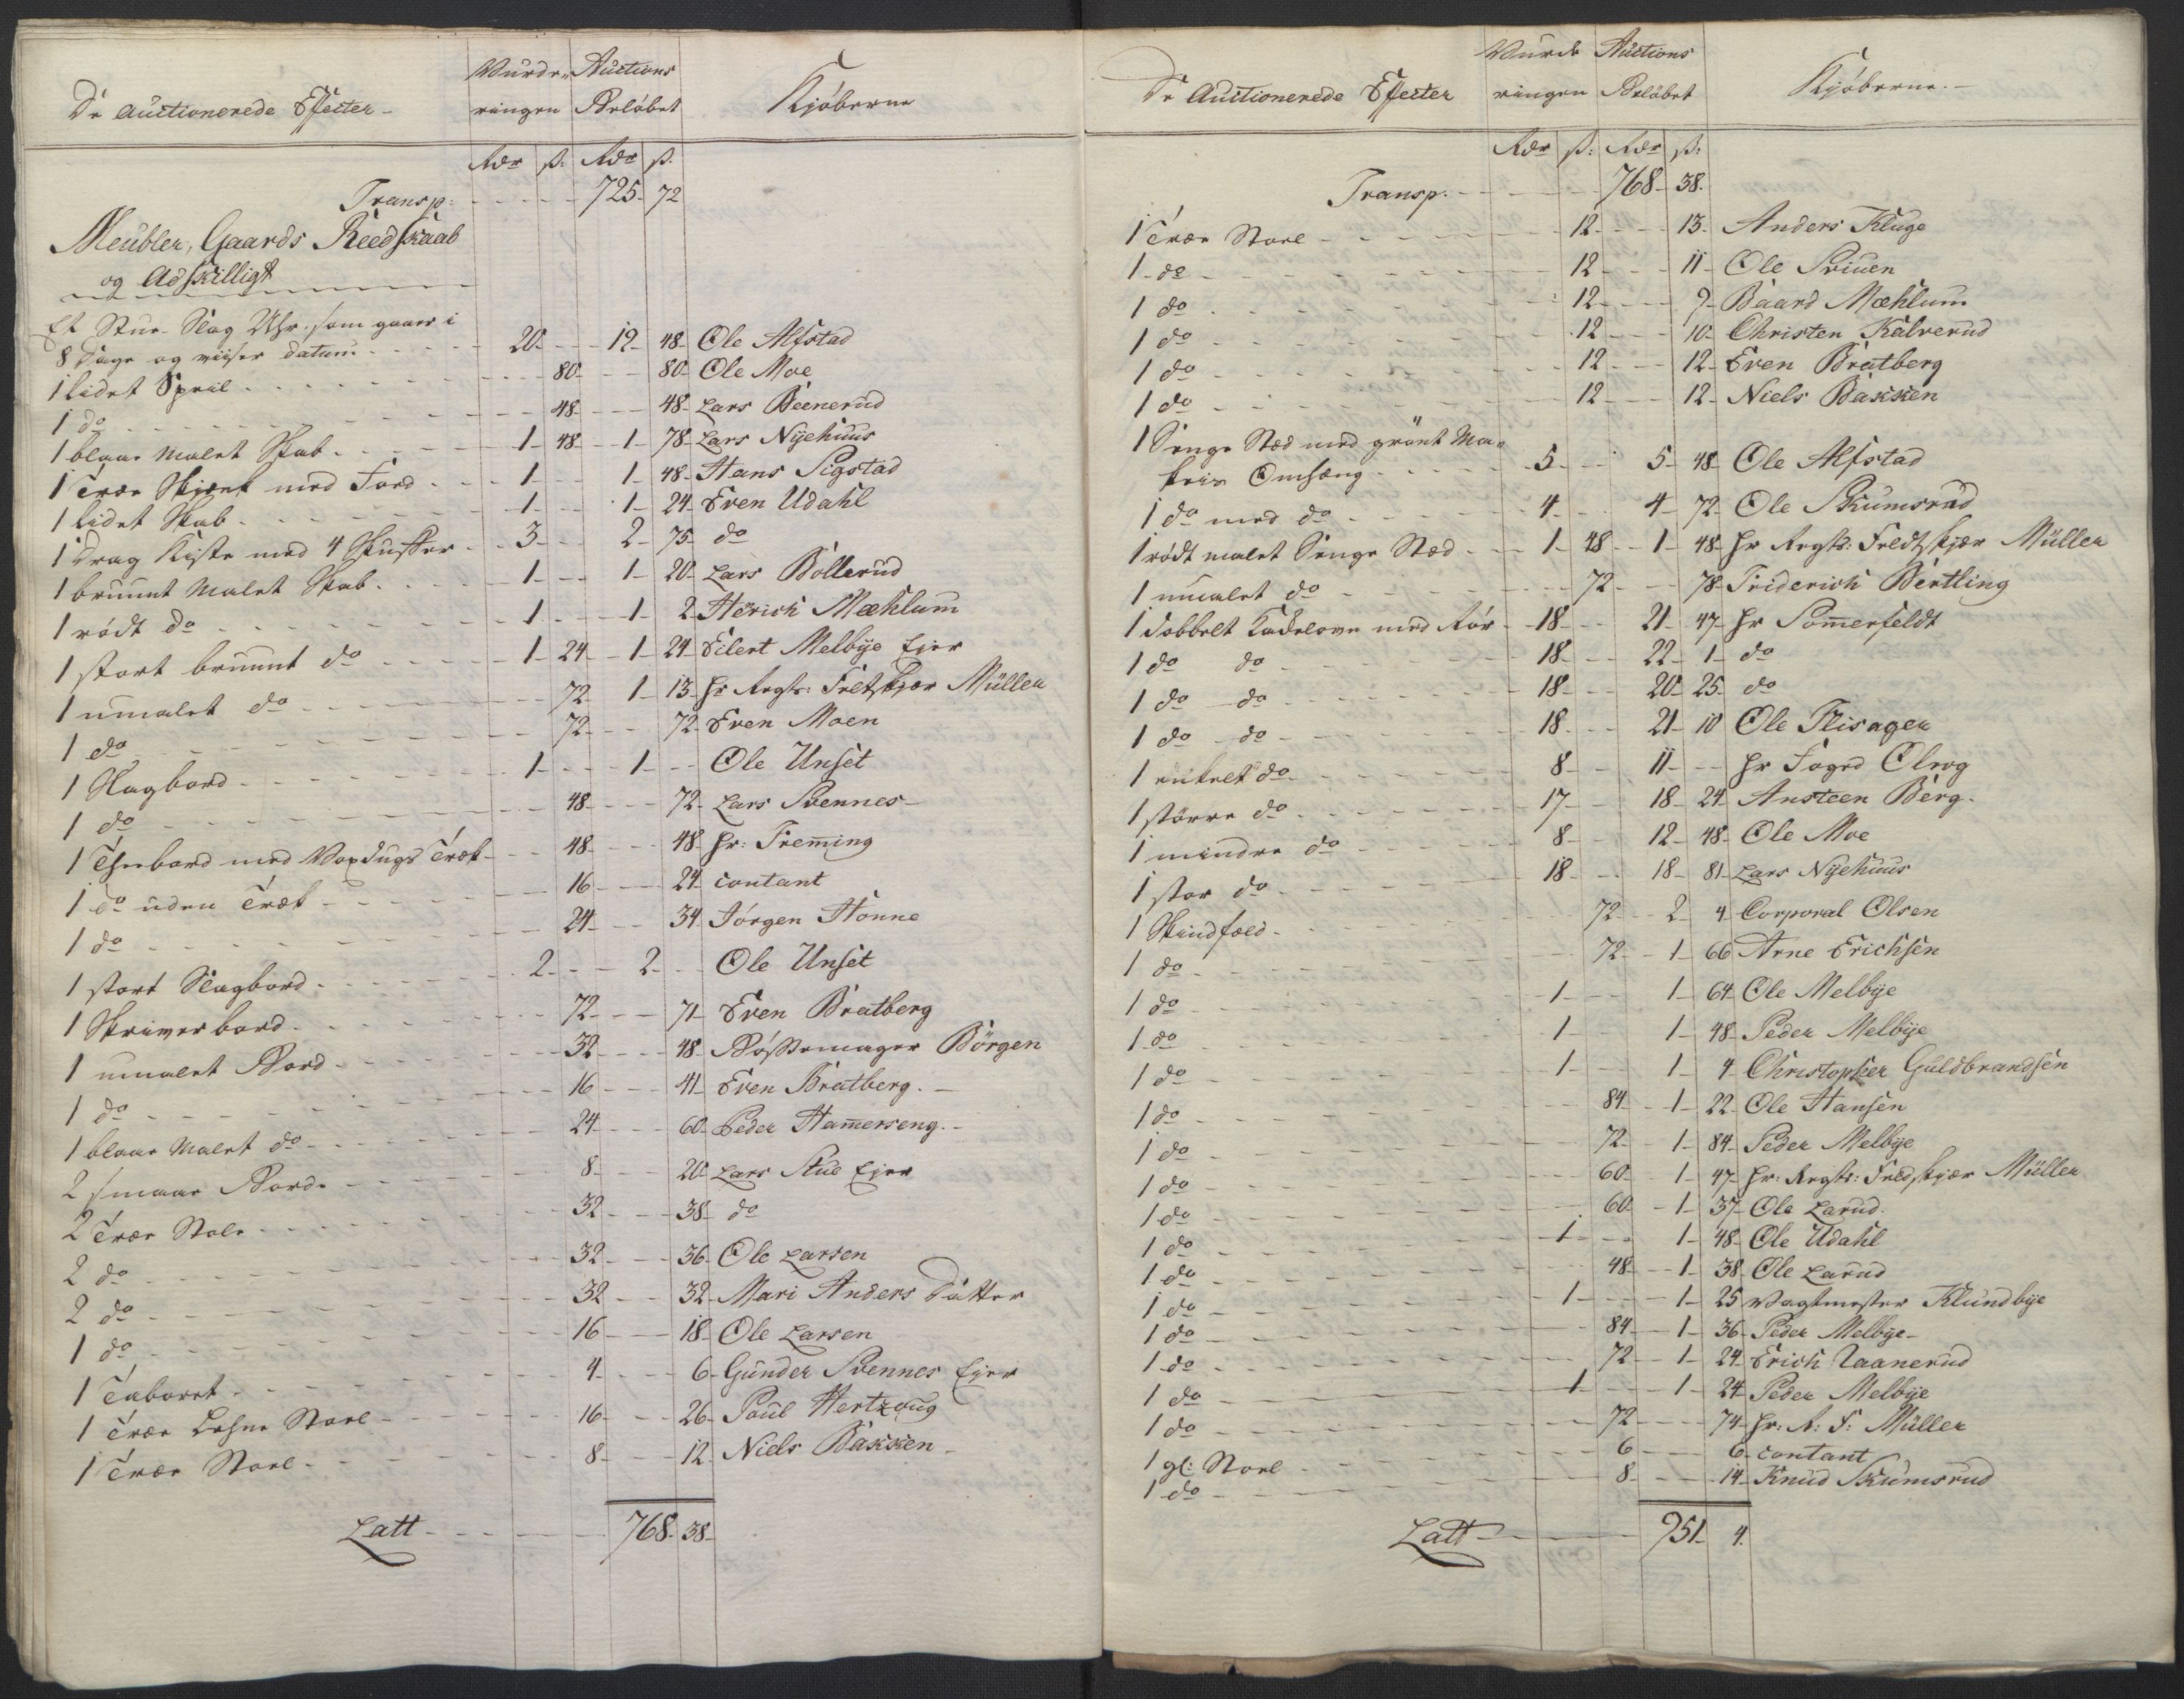 De Auctionerede Effecter
Vurde- Auctions
ringen Beløbet
Kjøberne
Rdr ß: Rdr ß.
Transp: 725 72
Meubler, Gaards Reedskaab
og Adskilligt
Et Stue-Slag Uhr. som gaaer i
8 Dage og viiser datum 20 12 48 Ole Alfstad
1 lidet Speil 80 80 Ole Moe
1 do 48 48 Lars Beenerud
1 blaae malet Skab 1 48 1 78 Lars Nÿehuus
1 Træe Skjenk med Foed 1 1 48 Hans Sigstad
1 lidet Skab 1 1 24 Even Udahl
1 Drag Kiste med 4 Skuffer 3 2 75 do
1 bruunt malet Skab 1 1 20 Lars Bollerud
1 rødt do 1 1 2 Henrich Mæhlum
1 stort bruunt do 1 24 1 24 Eilert Melbÿe Ejer
1 umalet do 72 1 13 Hr Regts: Feltskjær Müller
1 do 72 72 Even Moen
1 Slagbord 1 1 Ole Unset
1 do 48 72 Lars Svennes
1 Theebord med Voxdugs Træk 48 48 Hr: Fremming
1 do uden Træk 16 24 contant
1 do 24 34 Jørgen Honne
1 stort Slagbord 2 2 Ole Unset
1 Skriverbord 72 71 Even Bratberg
1 umalet Bord 32 48 Bøssemager Børgen
1 do 16 41 Even Bratberg.
1 blaae malet do 24 60 Peder Hammerseng.
2 smaae Borde 8 20 Lars Stue Ejer
2 Træe Stole 32 38 do
2 do 32 36 Ole Larsen
2 do 32 32 Mari Anders Datter
1 do 16 18 Ole Larsen
1 Taburet 4 6 Gunder Svennes Ejer
1 Træe Lehne Stoel 16 26 Poul Hertzoug
1 Træe Stoel 8 12 Niels Bakken
Latt 768 38
De Auctionerede Effecter
Vurde Auctions
ringen Beløbet
Kjøberne.
Rdr ß: Rdr ß:
Transp. 768 38.
1 Træe Stoel 12 13 Anders Kluge
1 do 12 11 Ole Priuen
1 do 12 9 Baard Mæhlum
1 do 12 10 Christen Kalverud
1 do 12 12 Even Bratberg
1 do 12 12 Niels Bakken
1 Senge Sted med grönt Ma-
trix Omhæng 5 5 48 Ole Alfstad
1 do med do 4 4 72 Ole Skumsrud
1 rødt malet Senge Sted 1 48 1 48 Hr Regts: Feldtskjær Müller
1 umalet do 72 78 Friderich Bertling
1 dobbelt Kakelovn med Rør 18 21 47 Hr Sommerfeldt
1 do do 18 22 1 do
1 do do 18 20 25 do
1 do do 18 21 10 Ole Flisager
1 enkelt do 8 11 Hr Foged Olrog
1 større do 17 18 24 Ansteen Berg.
1 mindre do 8 12 48 Ole Moe
1 stor do 18 18 81 Lars Nÿehuus
1 Skindfeld 72 2 4 Corporal Olsen
1 do 72 1 66 Arne Erichsen
1 do 1 1 64 Ole Melbÿe
1 do 1 1 48 Peder Melbÿe
1 do 1 1 4 Christopher Guldbrandsen
1 do 84 1 22 Ole Hansen
1 do 72 1 84 Peder Melbÿe
1 do 60 1 47 Hr: Regts: Feldskjær Müller
1 do 60 1 37 Ole Larud.
1 do 1 1 48 Ole Udahl
1 do 48 1 38 Ole Larud
1 do 1 1 25 Vagtmester Klundbÿe
1 do 84 1 36 Peder Melbÿe
1 do 72 1 24 Erich Taanerud
1 do 1 1 24 Peder Melbÿe
1 do 72 74 Hr: R: F: Müller
1 gl: Stoel 6 6 contant
1 do 8 14 Knud Skumsrud
Latt 951 4.